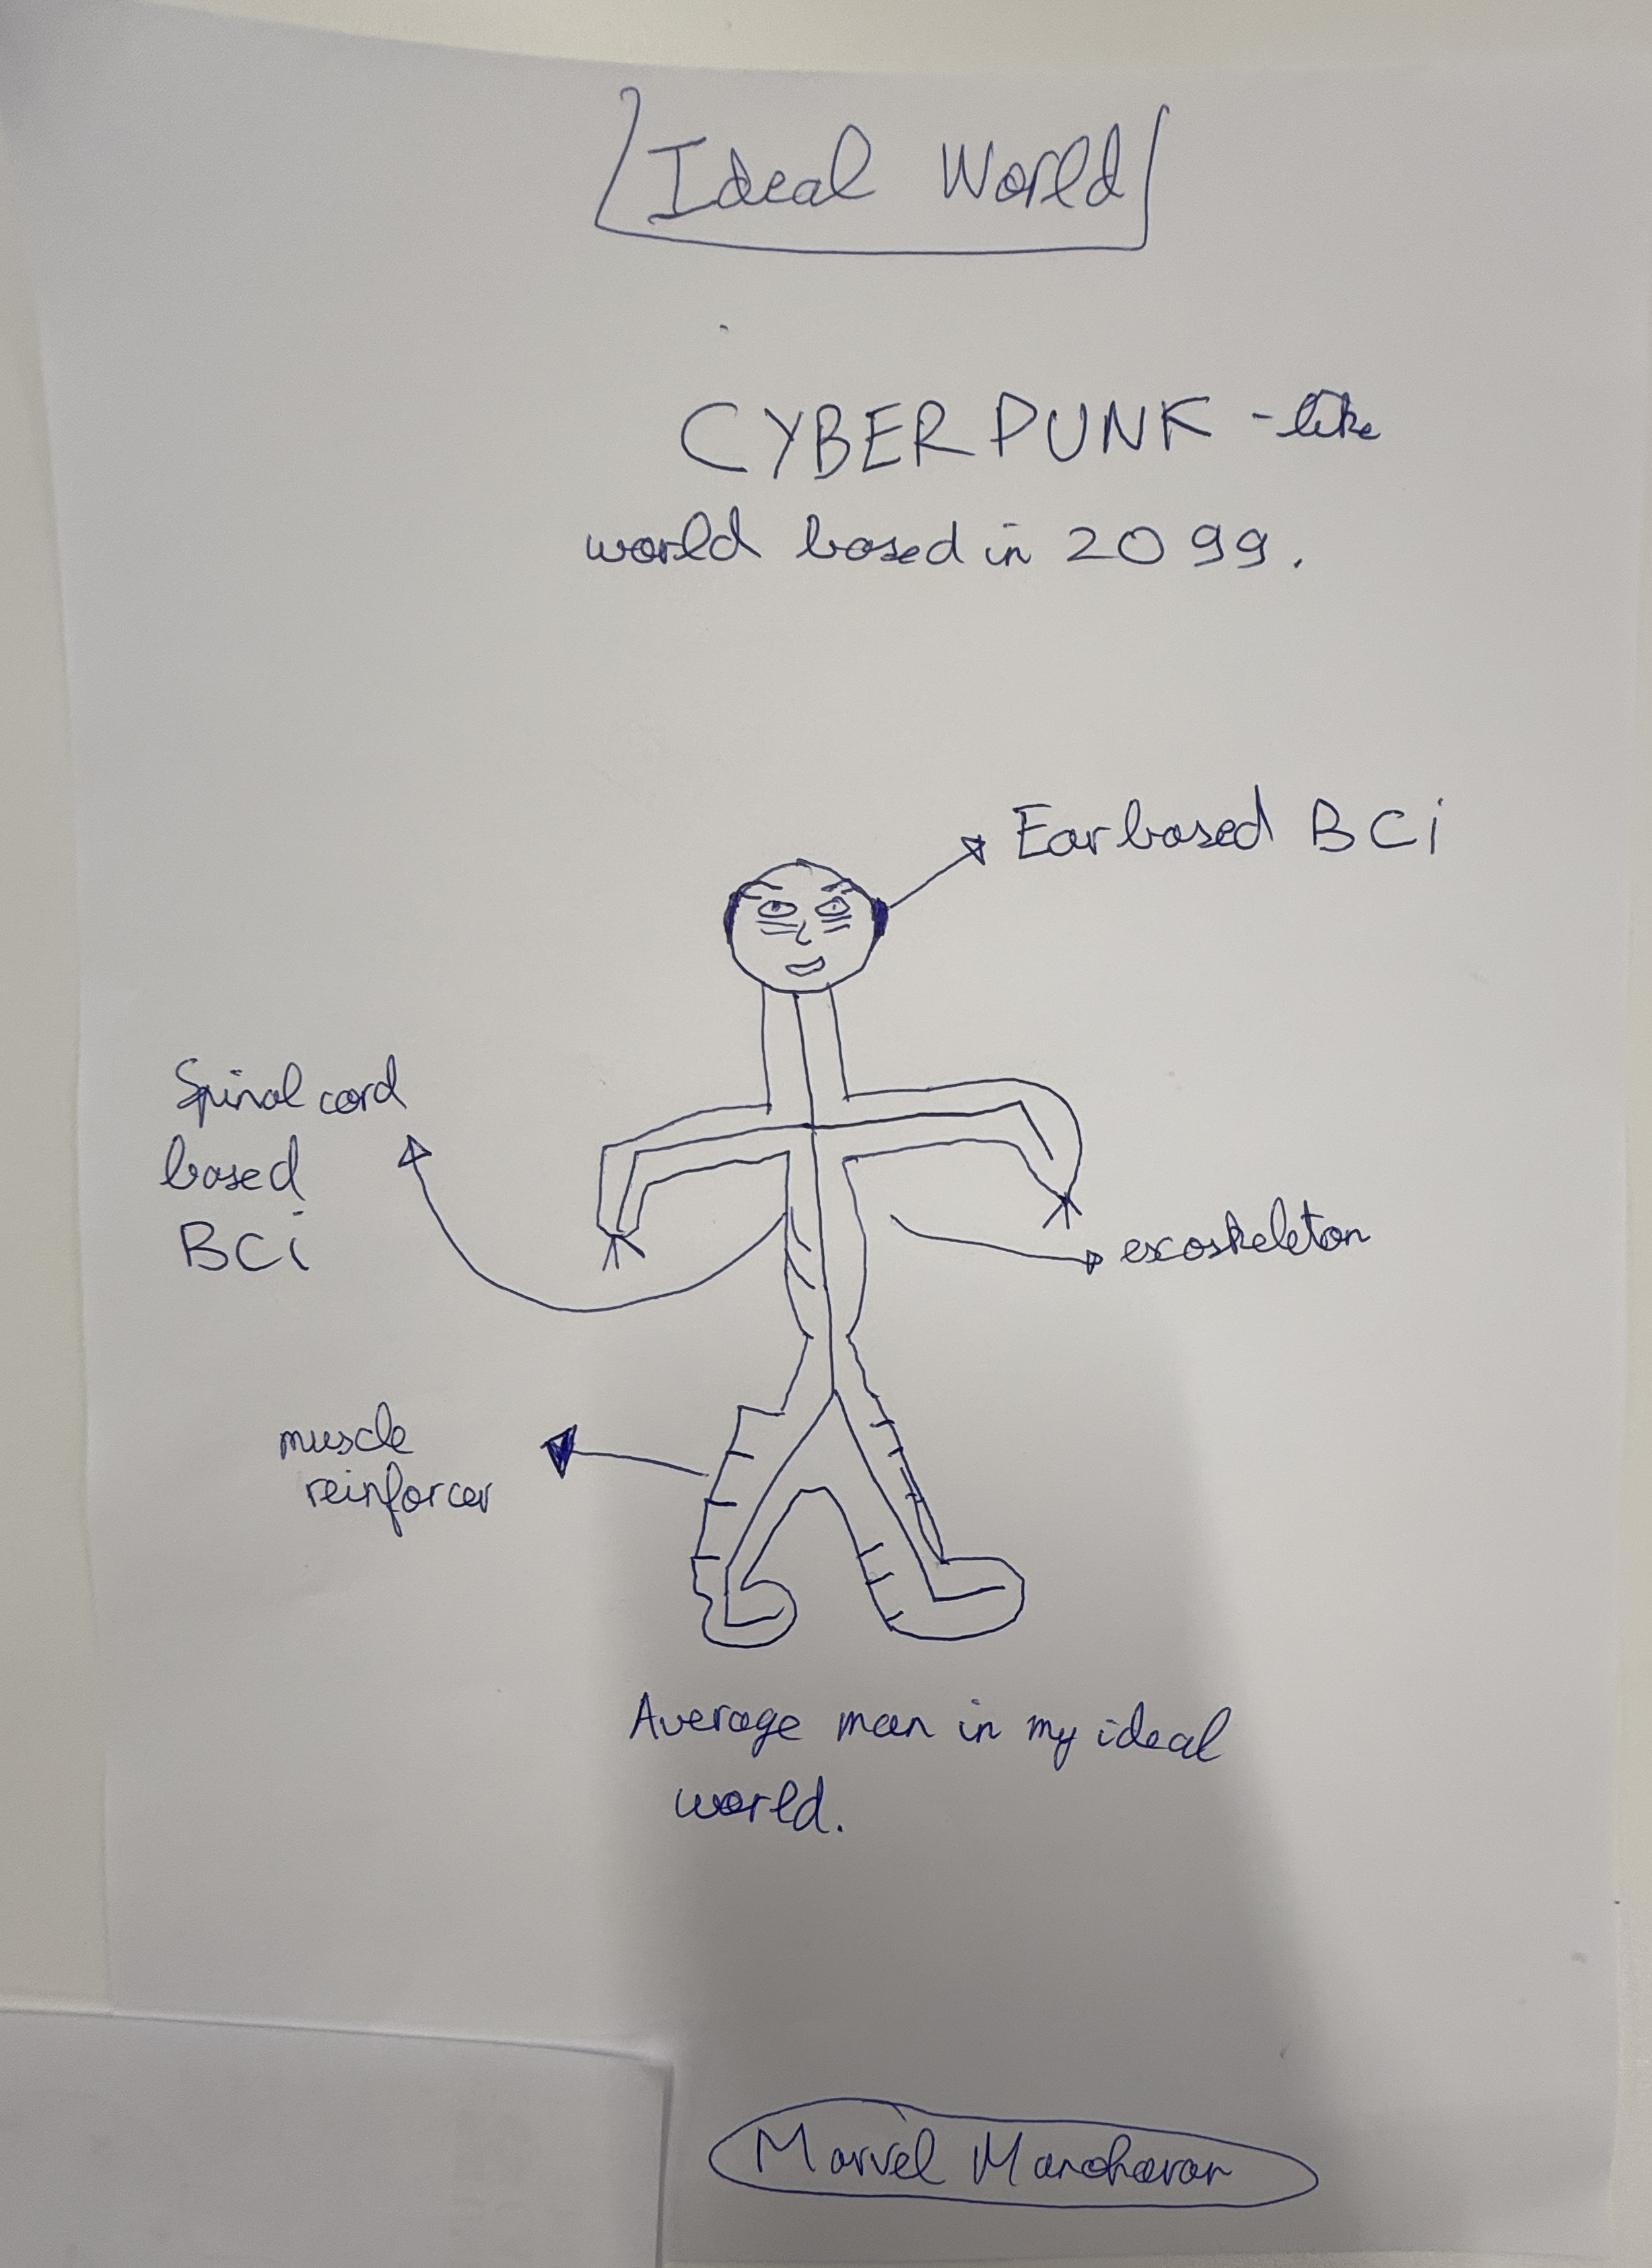 Ideal World
CYBERPUNK -like
world based in 2099.
Ear based BCi
Spinal cord
based
BCi
exoskeleton
muscle
reinforcer
Average man in my ideal
world.
Marvel Manoharan